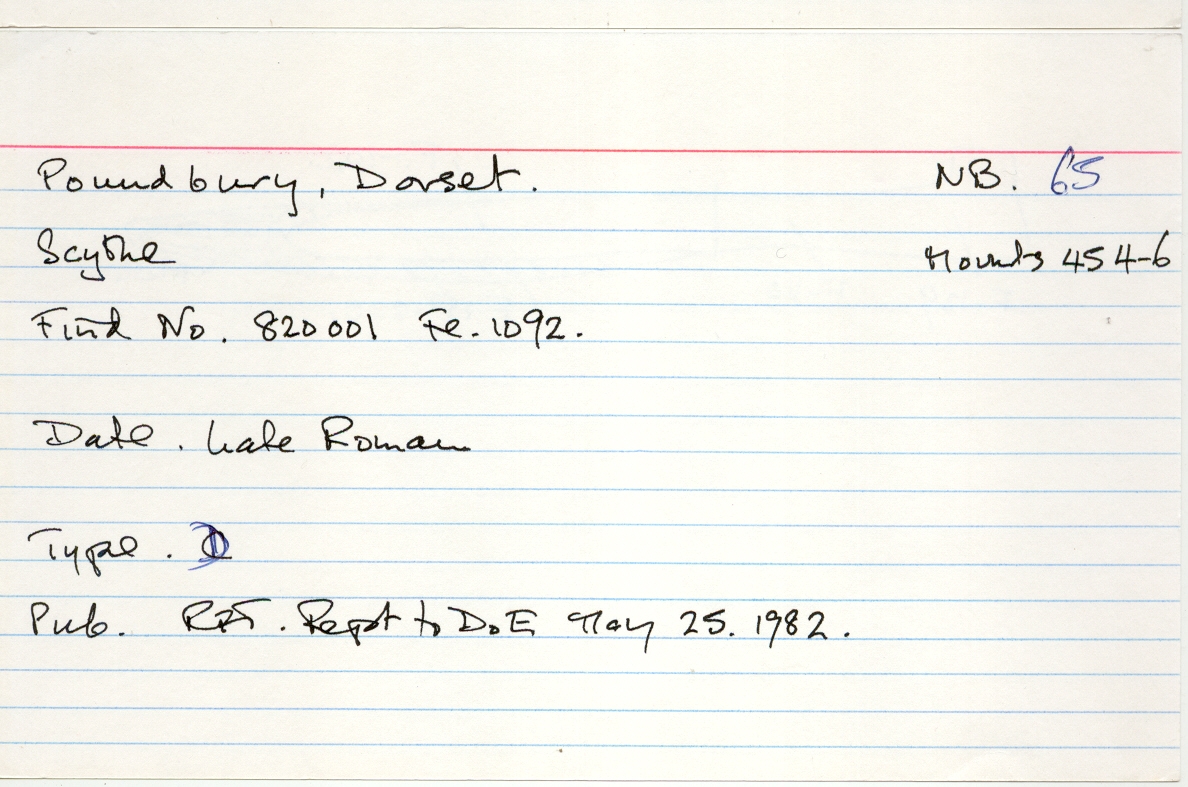 Poundbury, Dorset. NB. 65
Scythe Mounts 454-6
Find No. 820001 Fe. 1092.
Date. Late Roman
Type. D
Pub. RFT. Rept to DoE May 25. 1982.